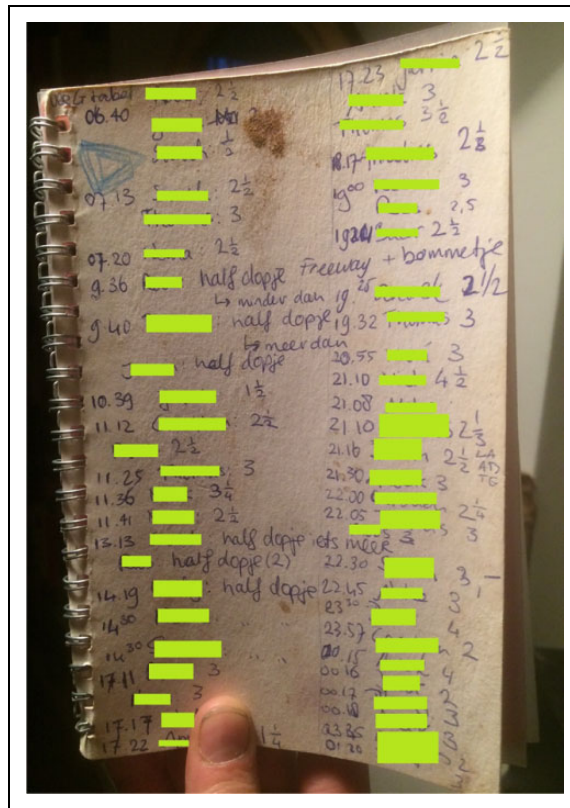 2½
06.40
½
07.13 2½
3
07.20 2½
9.36 half dopje
↳ minder dan
9.40 half dopje
↳ meer dan
half dopje
10.39 1½
11.12 2½
2½
11.25 3
11.36 3¼
11.41 2½
13.13 half dopje iets meer
half dopje (2)
14.19 half dopje
14.30 " "
14.30 " "
17.11 3
3
17.17
17.22 1¼
17.23 2½
3
3½
19.00 3
2,5
2½
Freeway + bommetje
19.25 2 1/2
19.32 3
20.55 3
21.10 4½
21.08
21.10 2⅓
21.16 2½
21.30 3
22.00
22.05 2¼
3
22.30
3,-
22.45 3
23.30
23.57 4
2
00.16 4
00.17 2
00.18 3
23.35 3
01.20 2